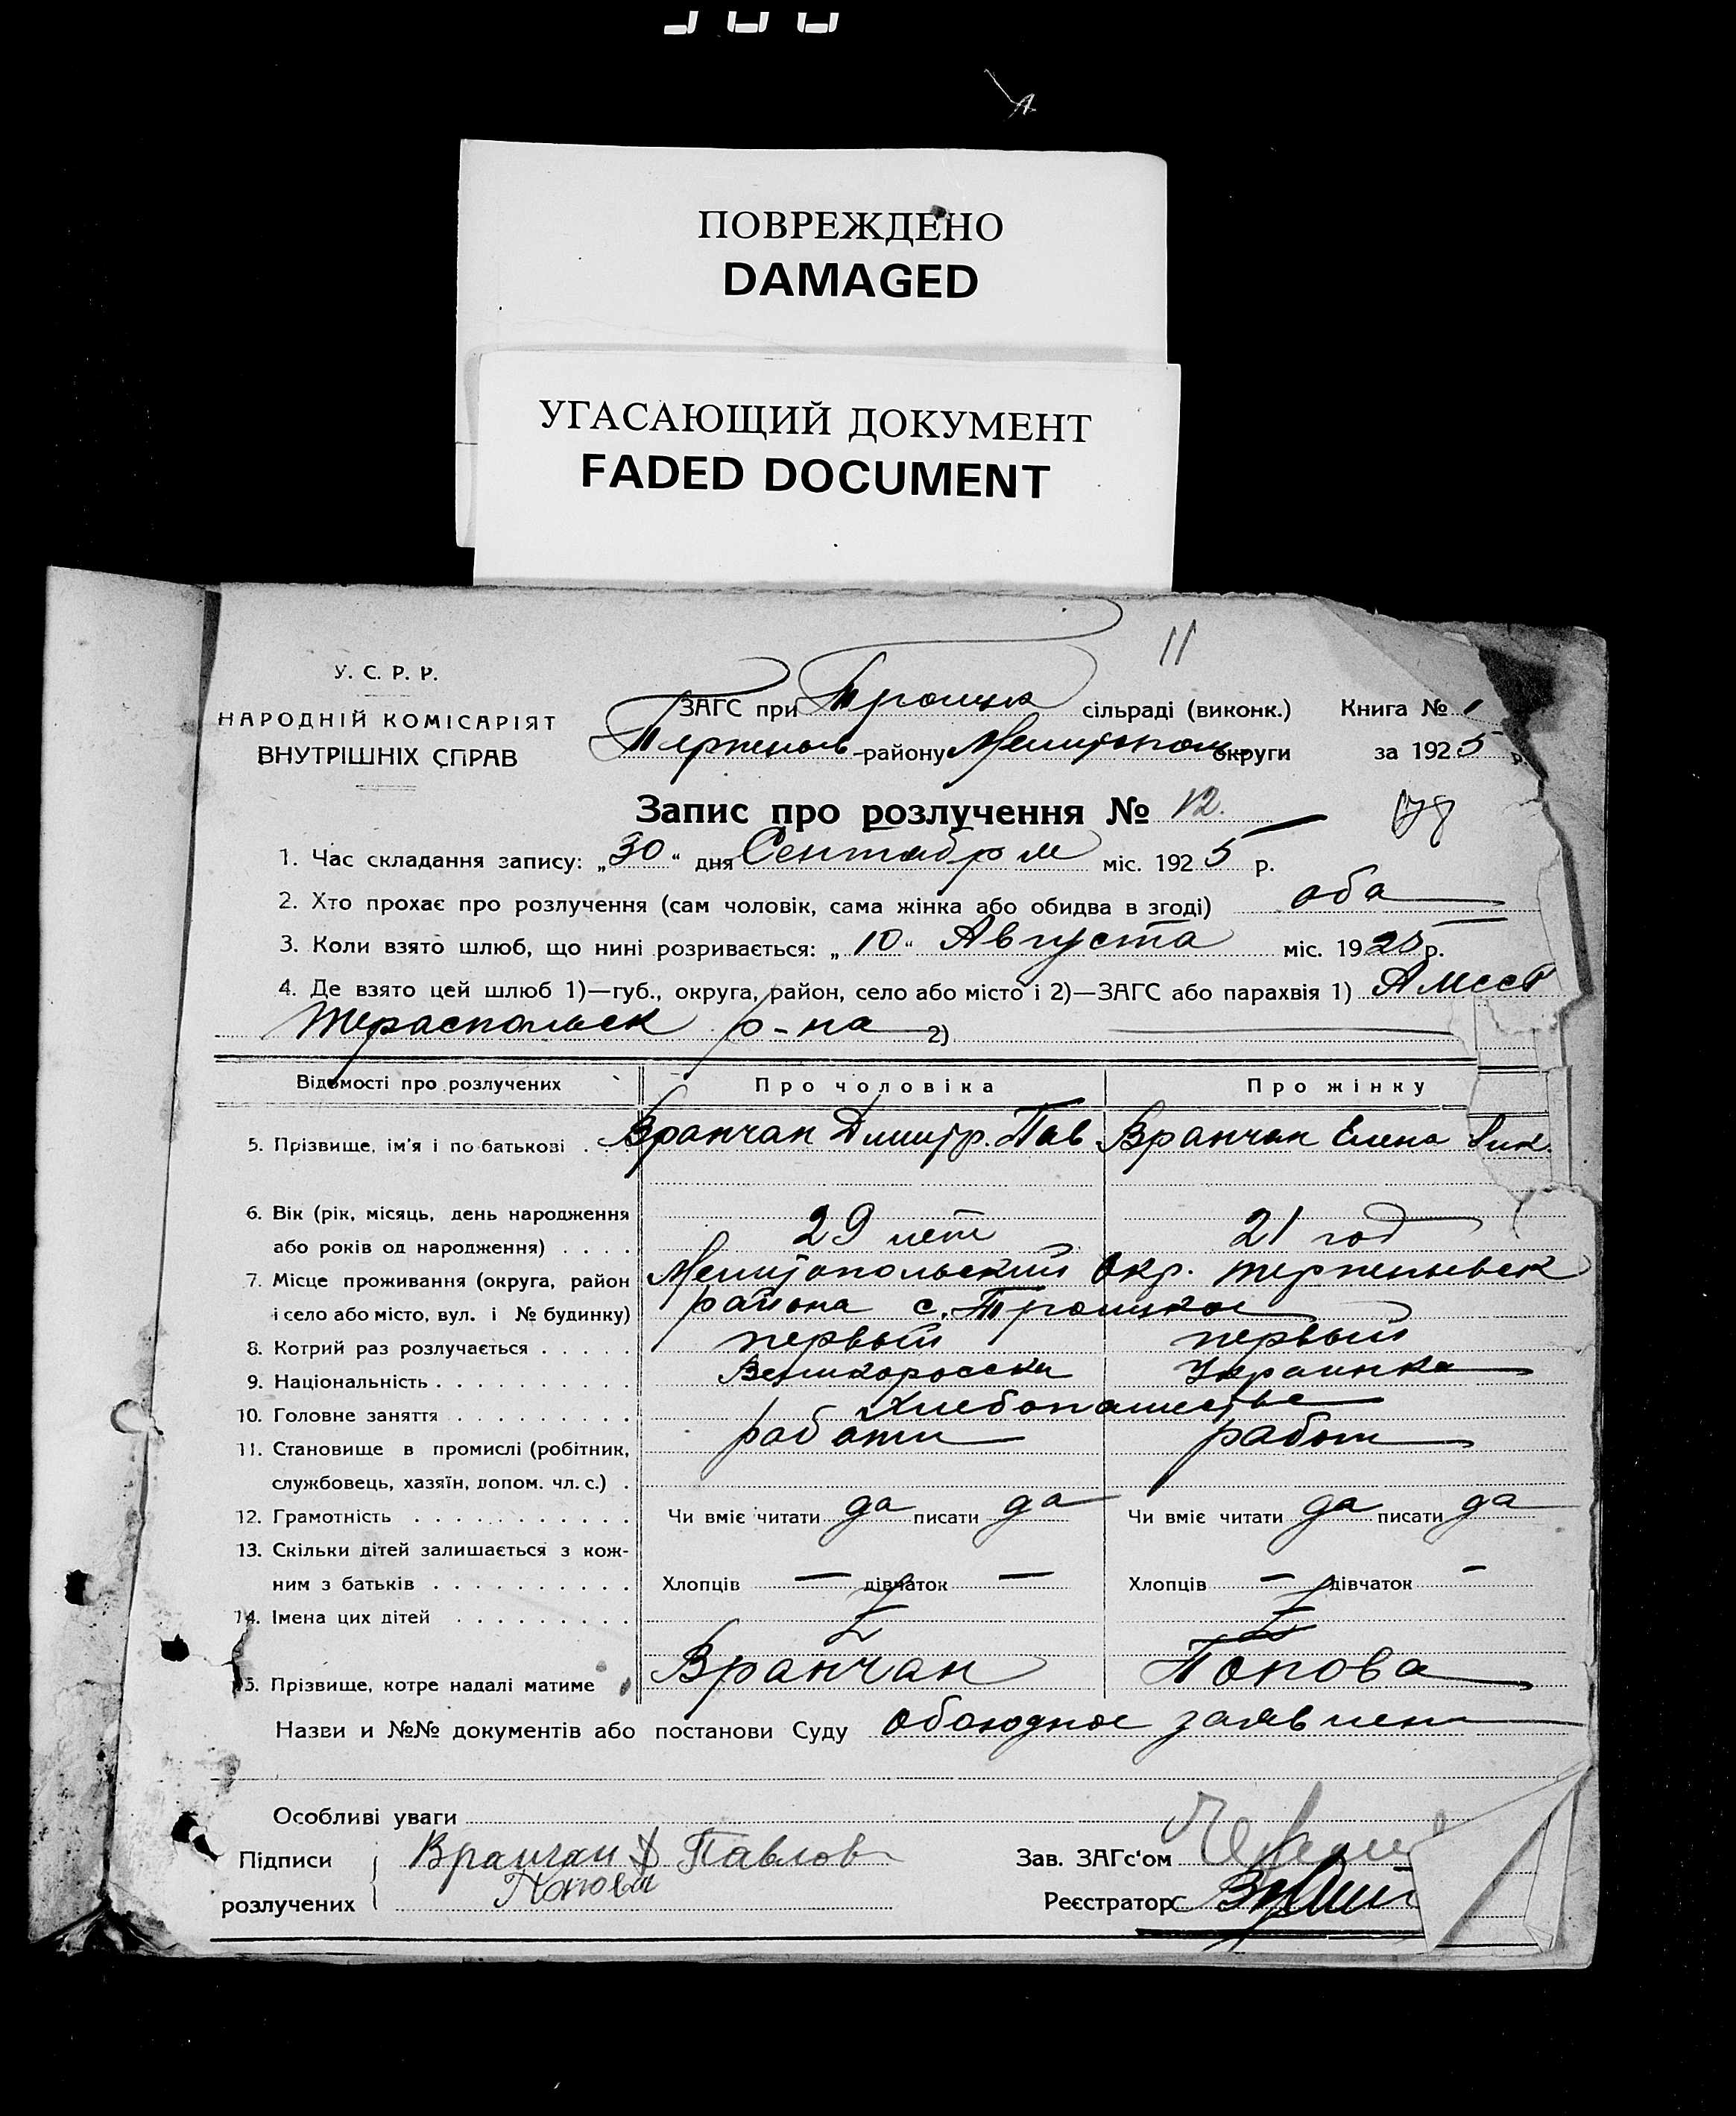 ПОВРЕЖДЕНО
DAMAGED
УГАСАЮЩИЙ ДОКУМЕНТ
FADED DOCUMENT
11
У. С. Р. Р.
НАРОДНІЙ КОМІСАРІЯТ
ВНУТРІШНІХ СПРАВ
ЗАГС при Троицк сільраді (виконк.) Книга № 1
району Мелитопол округи за 1925 р.
Запис про розлучення № 12.
178
1. Час складання запису: „30“ дня Сентября міс. 1925 р.
2. Хто прохає про розлучення (сам чоловік, сама жінка або обидва в згоді) оба
3. Коли взято шлюб, що нині розривається: „10“ Августа міс. 1925 р.
4. Де взято цей шлюб 1)—губ., округа, район, село або місто і 2)—ЗАГС або парахвія 1)
р-на 2)
Відомості про розлучених Про чоловіка Про жінку
5. Прізвище, ім'я і по батькові Вранчан Дмитр. Пав Вранчан Елена
6. Вік (рік, місяць, день народження
або років од народження) 29 лет 21 год
7. Місце проживання (округа, район Мелитопольский Окр.
і село або місто, вул. і № будинку) района с. Троицкое
8. Котрий раз розлучається первый первый
9. Національність Великоросски Украинка
10. Головне заняття Хлебопашество
11. Становище в промислі (робітник, работн работн
службовець, хазяїн, допом. чл. с.)
12. Грамотність Чи вміє читати да писати да Чи вміє читати да писати да
13. Скільки дітей залишається з кож-
ним з батьків Хлопців — дівчаток — Хлопців — дівчаток —
14. Імена цих дітей
15. Прізвище, котре надалі матиме Вранчан Попова
Назви и №№ документів або постанови Суду обоюдное заявлен
Особливі уваги
Підписи Вранчан Д Павлов Зав. ЗАГс'ом
розлучених Попова Реєстратор